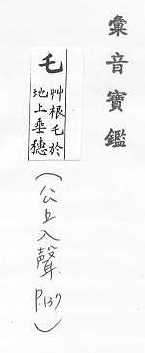 彙音寶鑑
毛
艸根毛於
地上垂穗
(公上入聲 P.137)